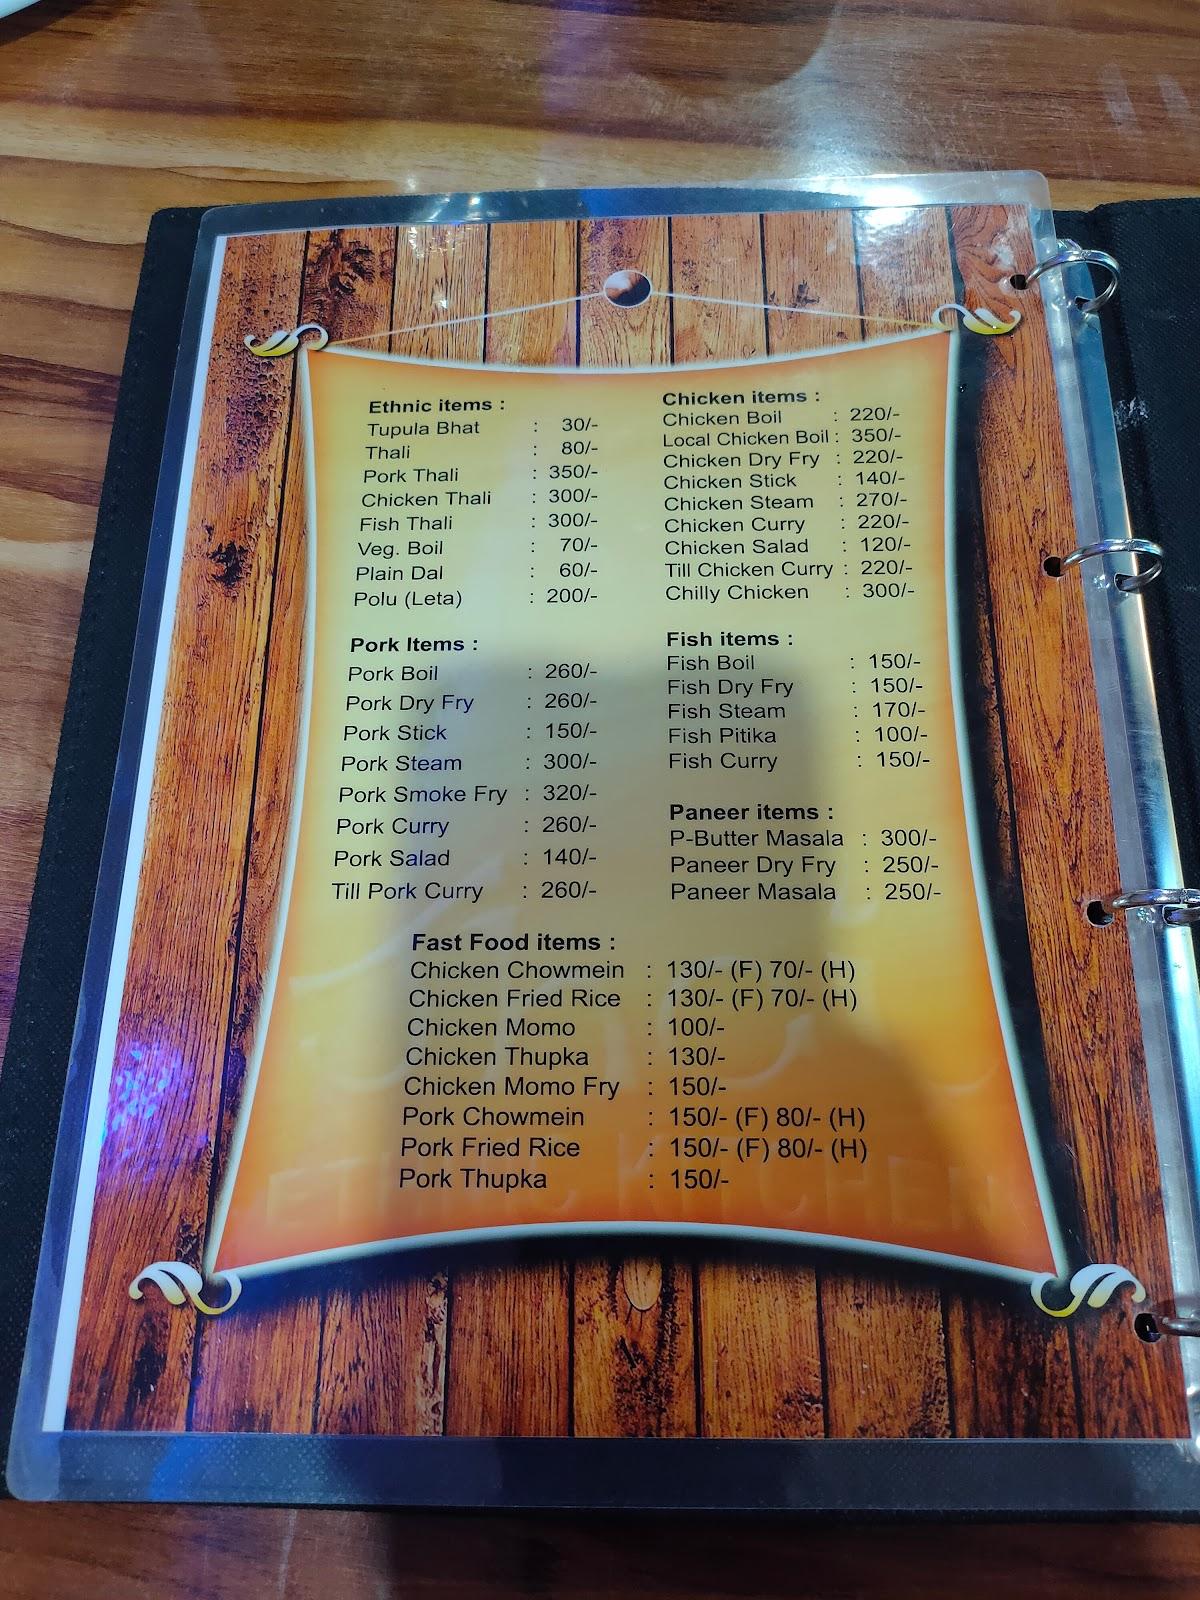 Ethnic items :
Tupula Bhat : 30/-
Thali : 80/-
Pork Thali : 350/-
Chicken Thali : 300/-
Fish Thali : 300/-
Veg. Boil : 70/-
Plain Dal : 60/-
Polu (Leta) : 200/-
Pork Items :
Pork Boil : 260/-
Pork Dry Fry : 260/-
Pork Stick : 150/-
Pork Steam : 300/-
Pork Smoke Fry : 320/-
Pork Curry : 260/-
Pork Salad : 140/-
Till Pork Curry : 260/-
Chicken items :
Chicken Boil : 220/-
Local Chicken Boil : 350/-
Chicken Dry Fry : 220/-
Chicken Stick : 140/-
Chicken Steam : 270/-
Chicken Curry : 220/-
Chicken Salad : 120/-
Till Chicken Curry : 220/-
Chilly Chicken : 300/-
Fish items :
Fish Boil : 150/-
Fish Dry Fry : 150/-
Fish Steam : 170/-
Fish Pitika : 100/-
Fish Curry : 150/-
Paneer items :
P-Butter Masala : 300/-
Paneer Dry Fry : 250/-
Paneer Masala : 250/-
Fast Food items :
Chicken Chowmein : 130/- (F) 70/- (H)
Chicken Fried Rice : 130/- (F) 70/- (H)
Chicken Momo : 100/-
Chicken Thupka : 130/-
Chicken Momo Fry : 150/-
Pork Chowmein : 150/- (F) 80/- (H)
Pork Fried Rice : 150/- (F) 80/- (H)
Pork Thupka : 150/-
ETHNIC KITCHEN